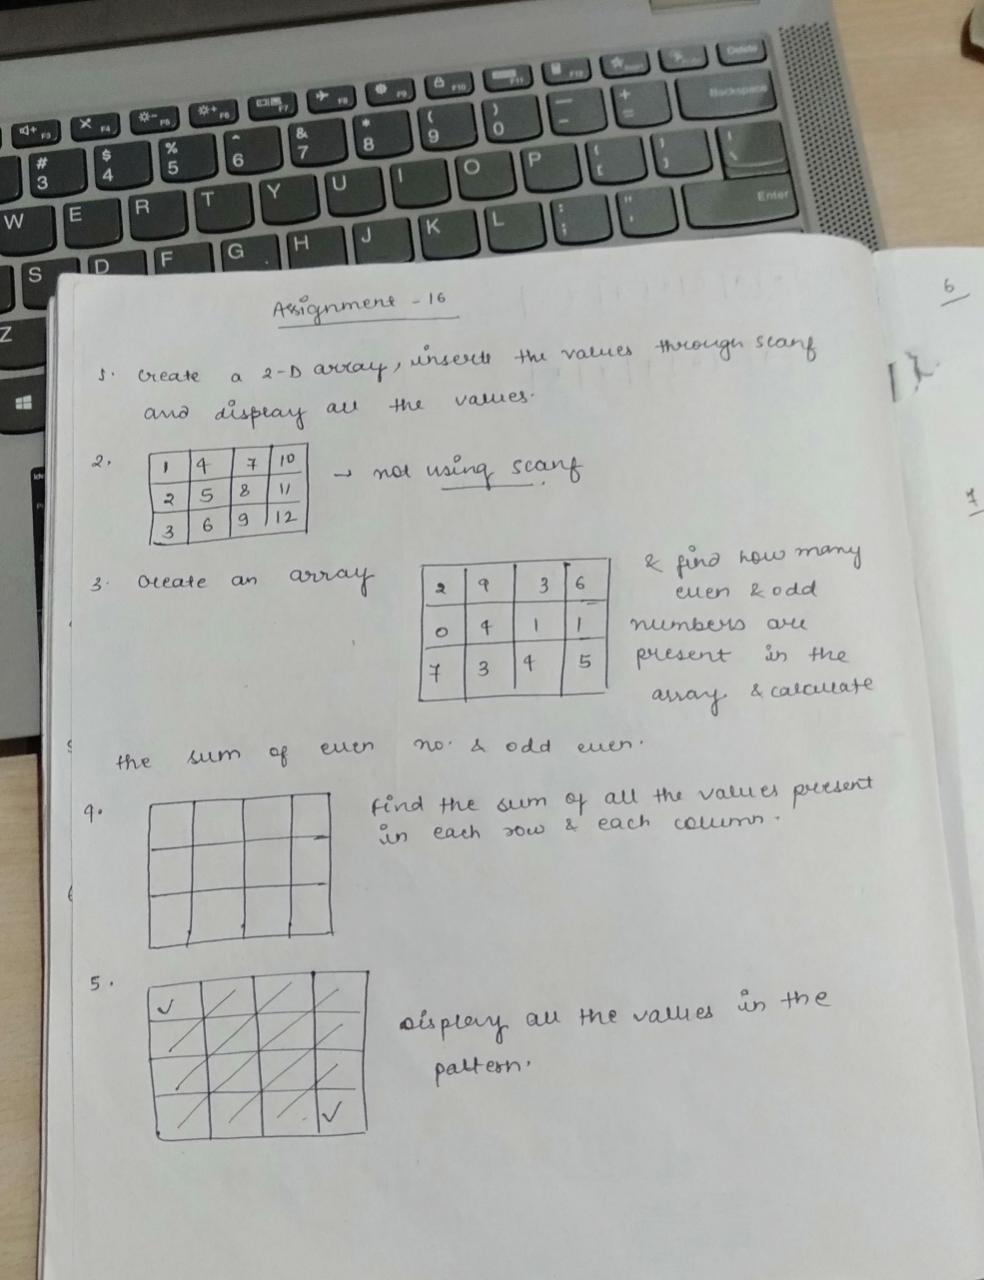 F3 F4 F5 F6 F7 F8 F9 F10 F11 F12 Delete
# 3 $ 4 % 5 ^ 6 & 7 * 8 ( 9 ) 0 — - + = Backspace
W E R T Y U I O P { [ } ] | \
S D F G H J K L : ; " ' Enter
Z
Assignment - 16
1. Create a 2-D array, inserts the values through scanf
and display all the values.
2.
1 4 7 10
2 5 8 11
3 6 9 12
→ not using scanf
3. Create an array
2 9 3 6
0 4 1 1
7 3 4 5
& find how many
even & odd
numbers are
present in the
array & calculate
the sum of even no. & odd even.
4.
find the sum of all the values present
in each row & each column.
5.
Display all the values in the
pattern.
6
7